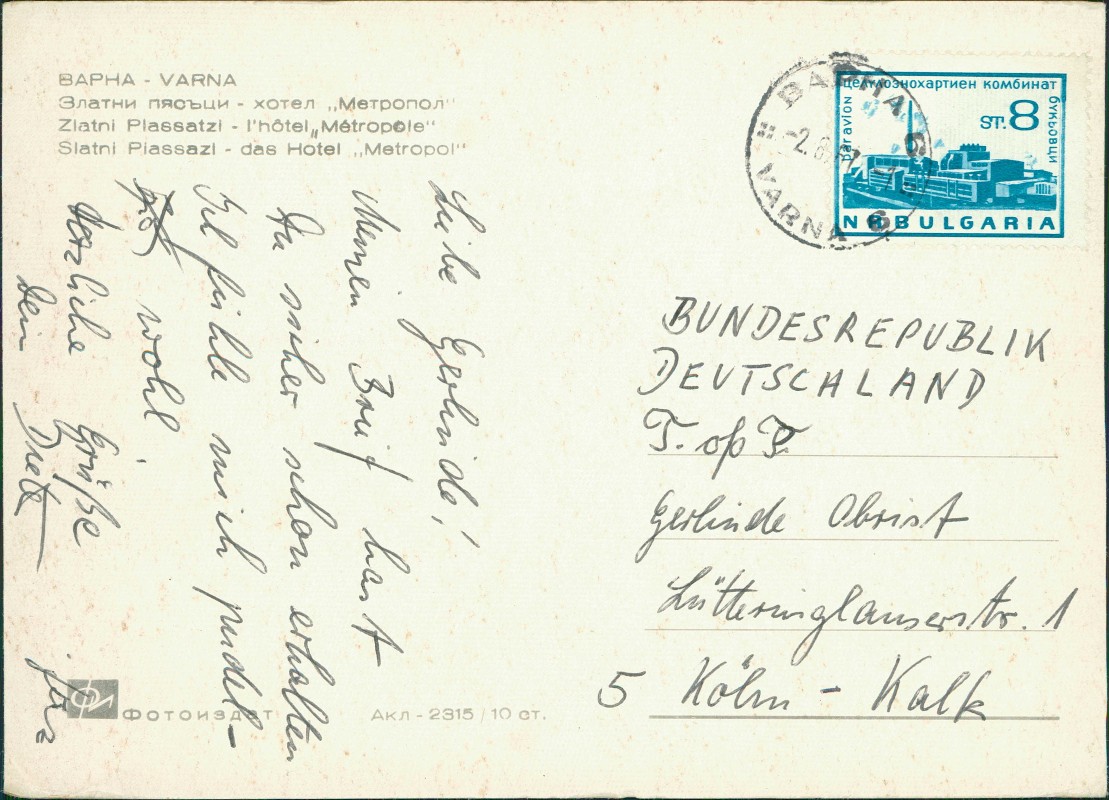 ВАРНА - VARNA
Златни пясъци - хотел „Метропол"
Zlatni Piassatzi - l'hôtel „Métropole"
Slatni Piassazi - das Hotel „Metropol"
Liebe Gerlinde!
Meinen Brief hast
Du sicher schon erhalten
Ich fühle mich pudel-
wohl.
Herzliche Grüße
Dein
целулознохартиен комбинат
букьовци
par avion
ST. 8
NRBULGARIA
ВАРНА
VARNA
BUNDESREPUBLIK
DEUTSCHLAND
Gerlinde Obrist
Lütteringhauserstr. 1
5 Köln - Kalk
Фотоиздат
Акл - 2315 / 10 ст.